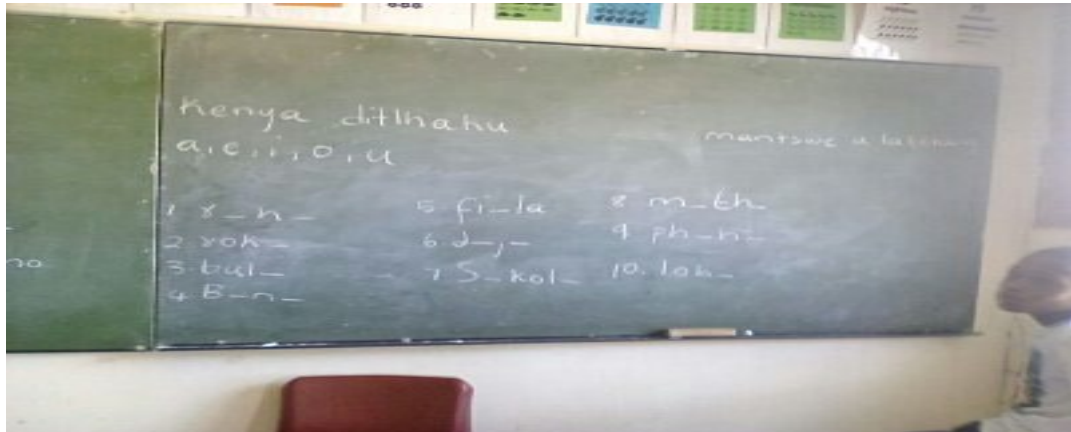 Kenya ditlhaku
a, e, i, o, u
mantswe a
1 r_h_
2 rok_
3. bul_
4 B_n_
5 fi_la
6 J_j_
7 S_kol_
8 m_th_
9 ph_h_
10. lok_
no